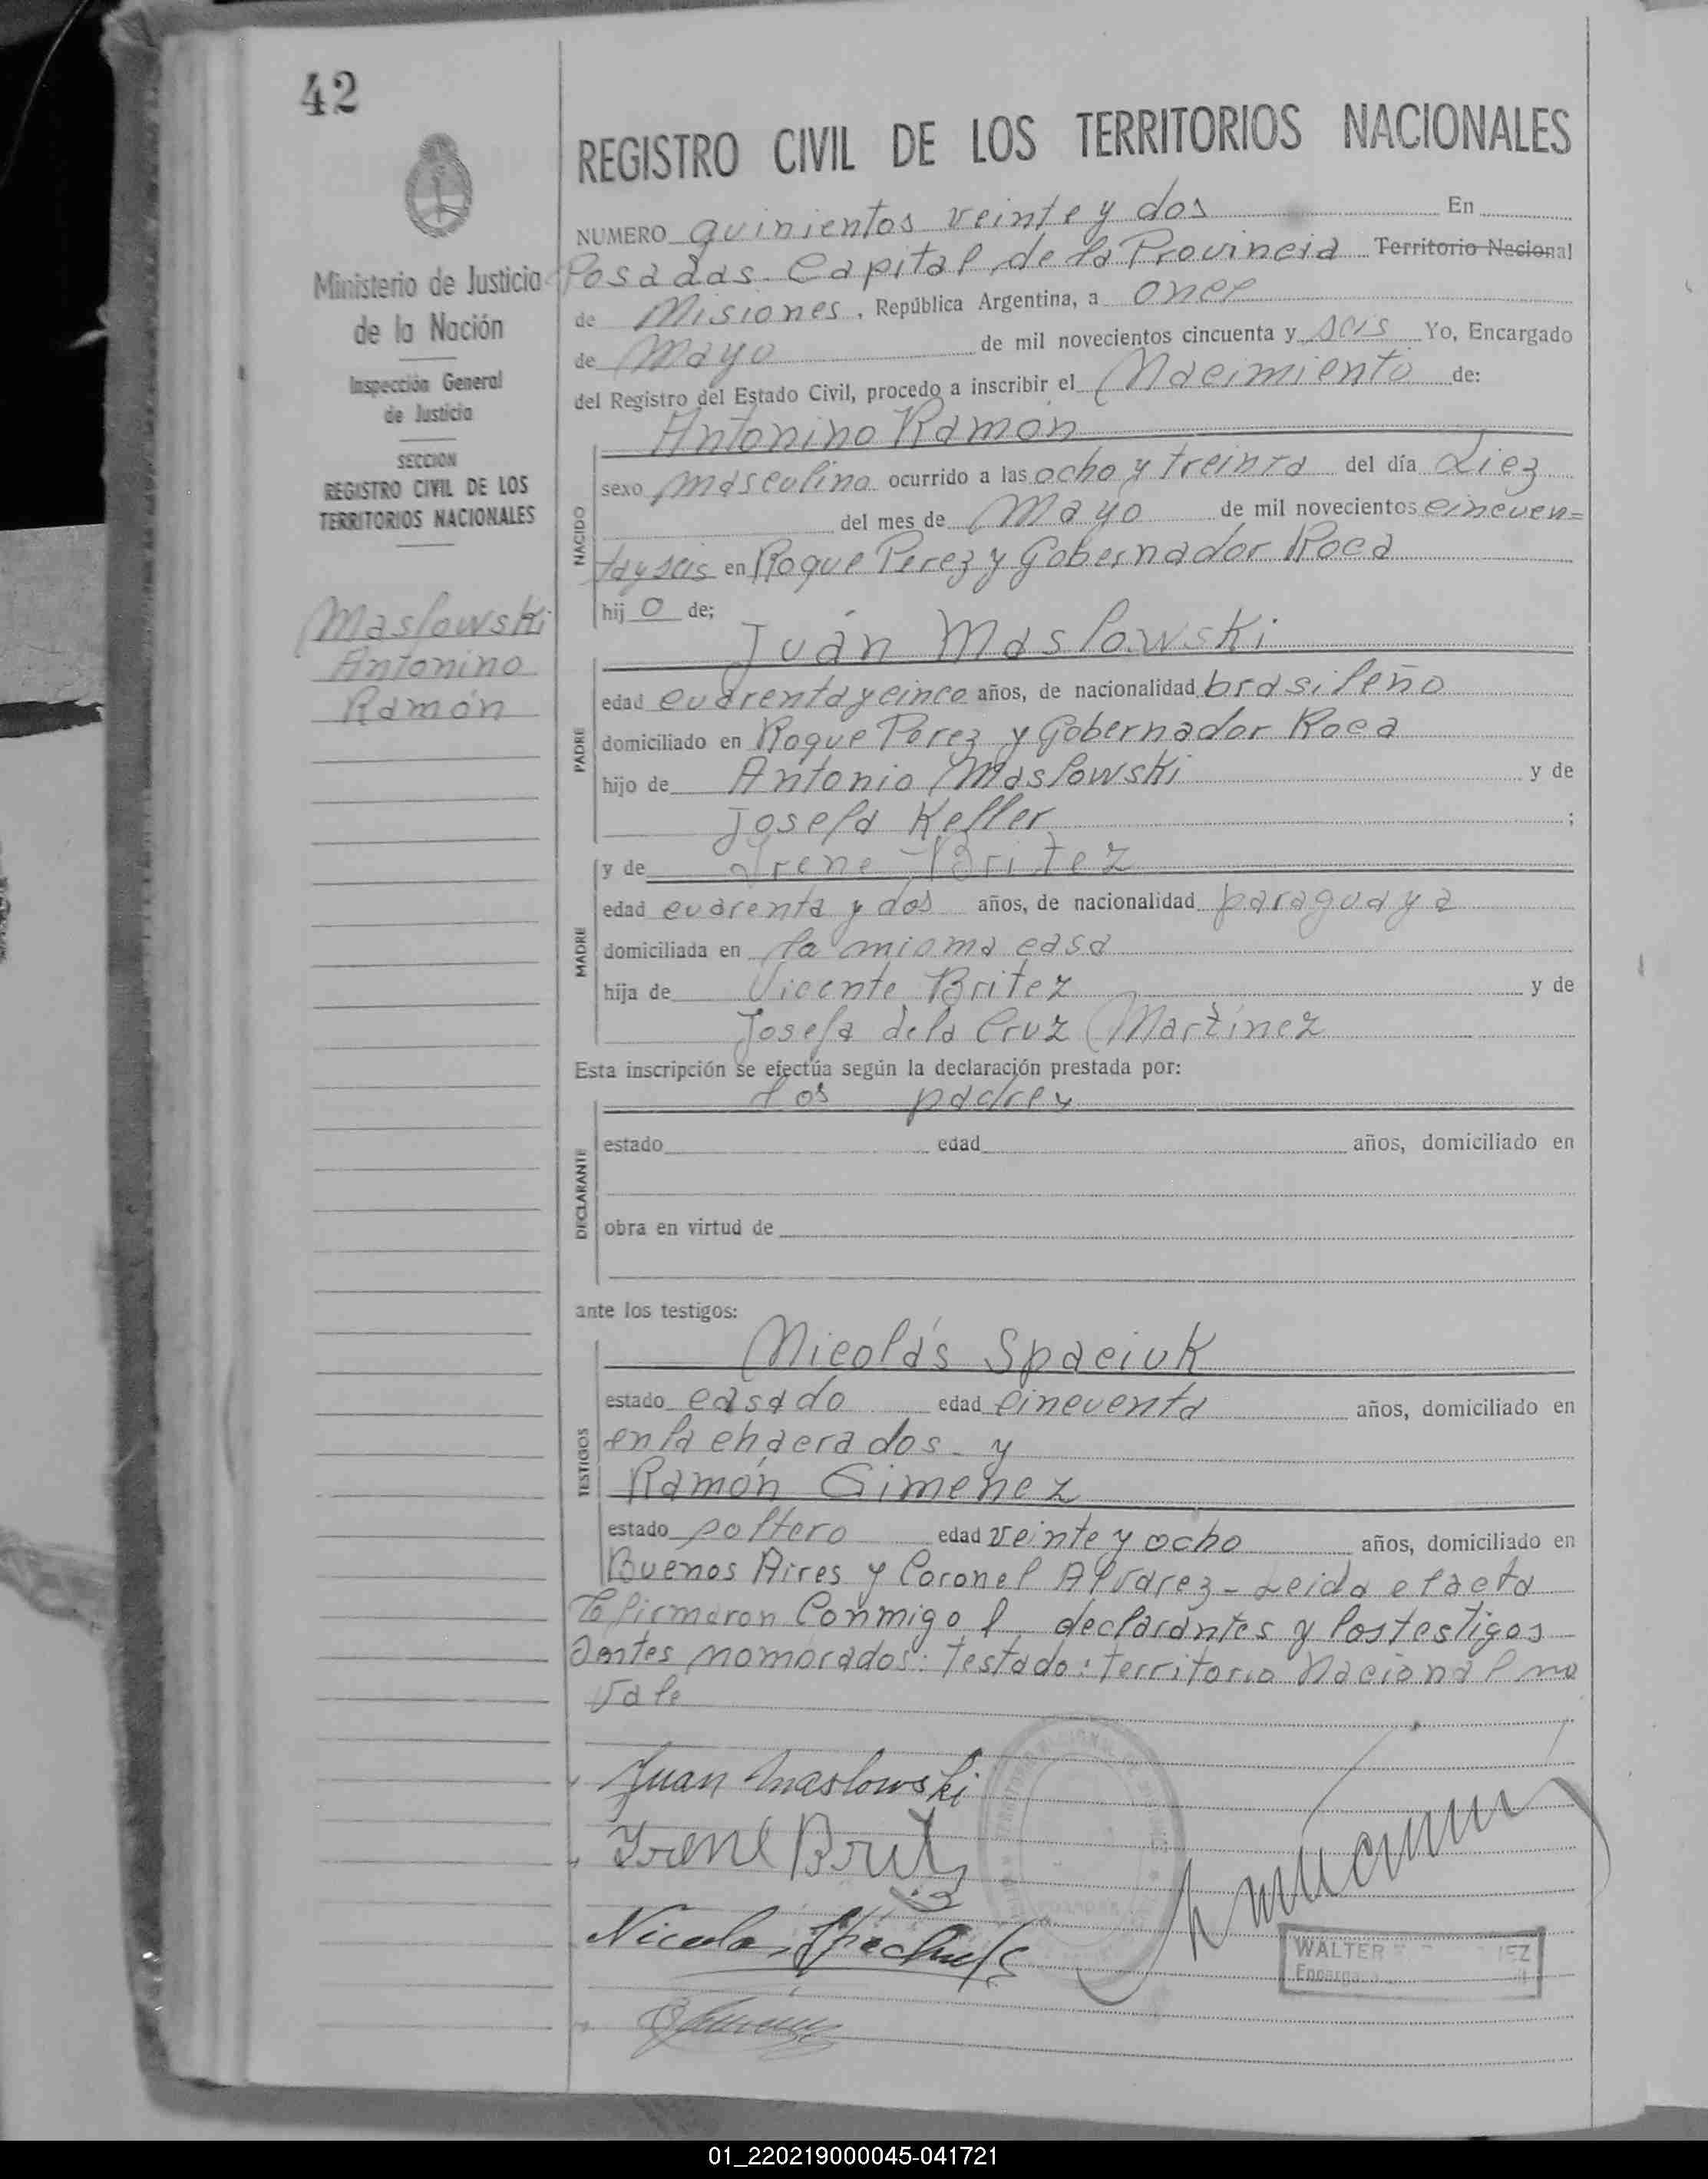 42
Ministerio de Justicia
de la Nación
Inspección General
de Justicia
SECCION
REGISTRO CIVIL DE LOS
TERRITORIOS NACIONALES
Maslowski
Antonino
Ramón
REGISTRO CIVIL DE LOS TERRITORIOS NACIONALES
NUMERO quinientos veinte y dos En
Posadas. Capital de la Provincia Territorio Nacional
de Misiones, República Argentina, a once
de Mayo de mil novecientos cincuenta y seis Yo, Encargado
del Registro del Estado Civil, procedo a inscribir el Nacimiento de:
Antonino Ramón
NACIDO
sexo masculino ocurrido a las ocho y treinta del día diez
del mes de Mayo de mil novecientos cincuen=
tay seis en Roque Perez y Gobernador Roca
hij o de;
Juan Maslowski
PADRE
edad cuarenta y cinco años, de nacionalidad brasileño
domiciliado en Roque Perez y Gobernador Roca
hijo de Antonio Maslowski y de
Josefa Keller ;
y de Irene Britez
MADRE
edad cuarenta y dos años, de nacionalidad paraguaya
domiciliada en la misma casa
hija de Vicente Britez y de
Josefa de la Cruz Martínez
Esta inscripción se efectúa según la declaración prestada por:
los padres
DECLARANTE
estado edad años, domiciliado en
obra en virtud de
ante los testigos:
Nicolás Spaciuk
TESTIGOS
estado casado edad cincuenta años, domiciliado en
en la chacra dos - y
Ramón Gimenez
estado soltero edad veinte y ocho años, domiciliado en
Buenos Aires y Coronel Alvarez - Leida el acta
la firmaron conmigo l declarantes y los testigos
antes nombrados: Testado: Territorio Nacional no
vale
Juan Maslowski
Irene Britez
Nicolas
WALTER